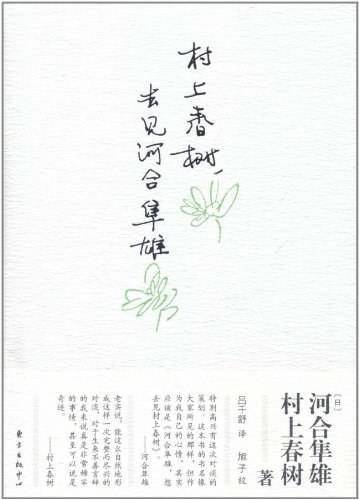 村上春树，
去见河合隼雄
[日]
河合隼雄
村上春树
著
吕千舒 译 旭子
特别高兴有这次对谈的
策划。这本书的书名像
大家所见的那样，但作
为我自己的心情，其实
应该是《河合隼雄，想
去见村上春树》。
——河合隼雄
老实说，能这么自然地形
成这样一次完整而尽兴的
对谈，对于生来不善言辞
的我来说真是非常稀罕
的事情，甚至可以说是
奇迹。
——村上春树
东方出版中心